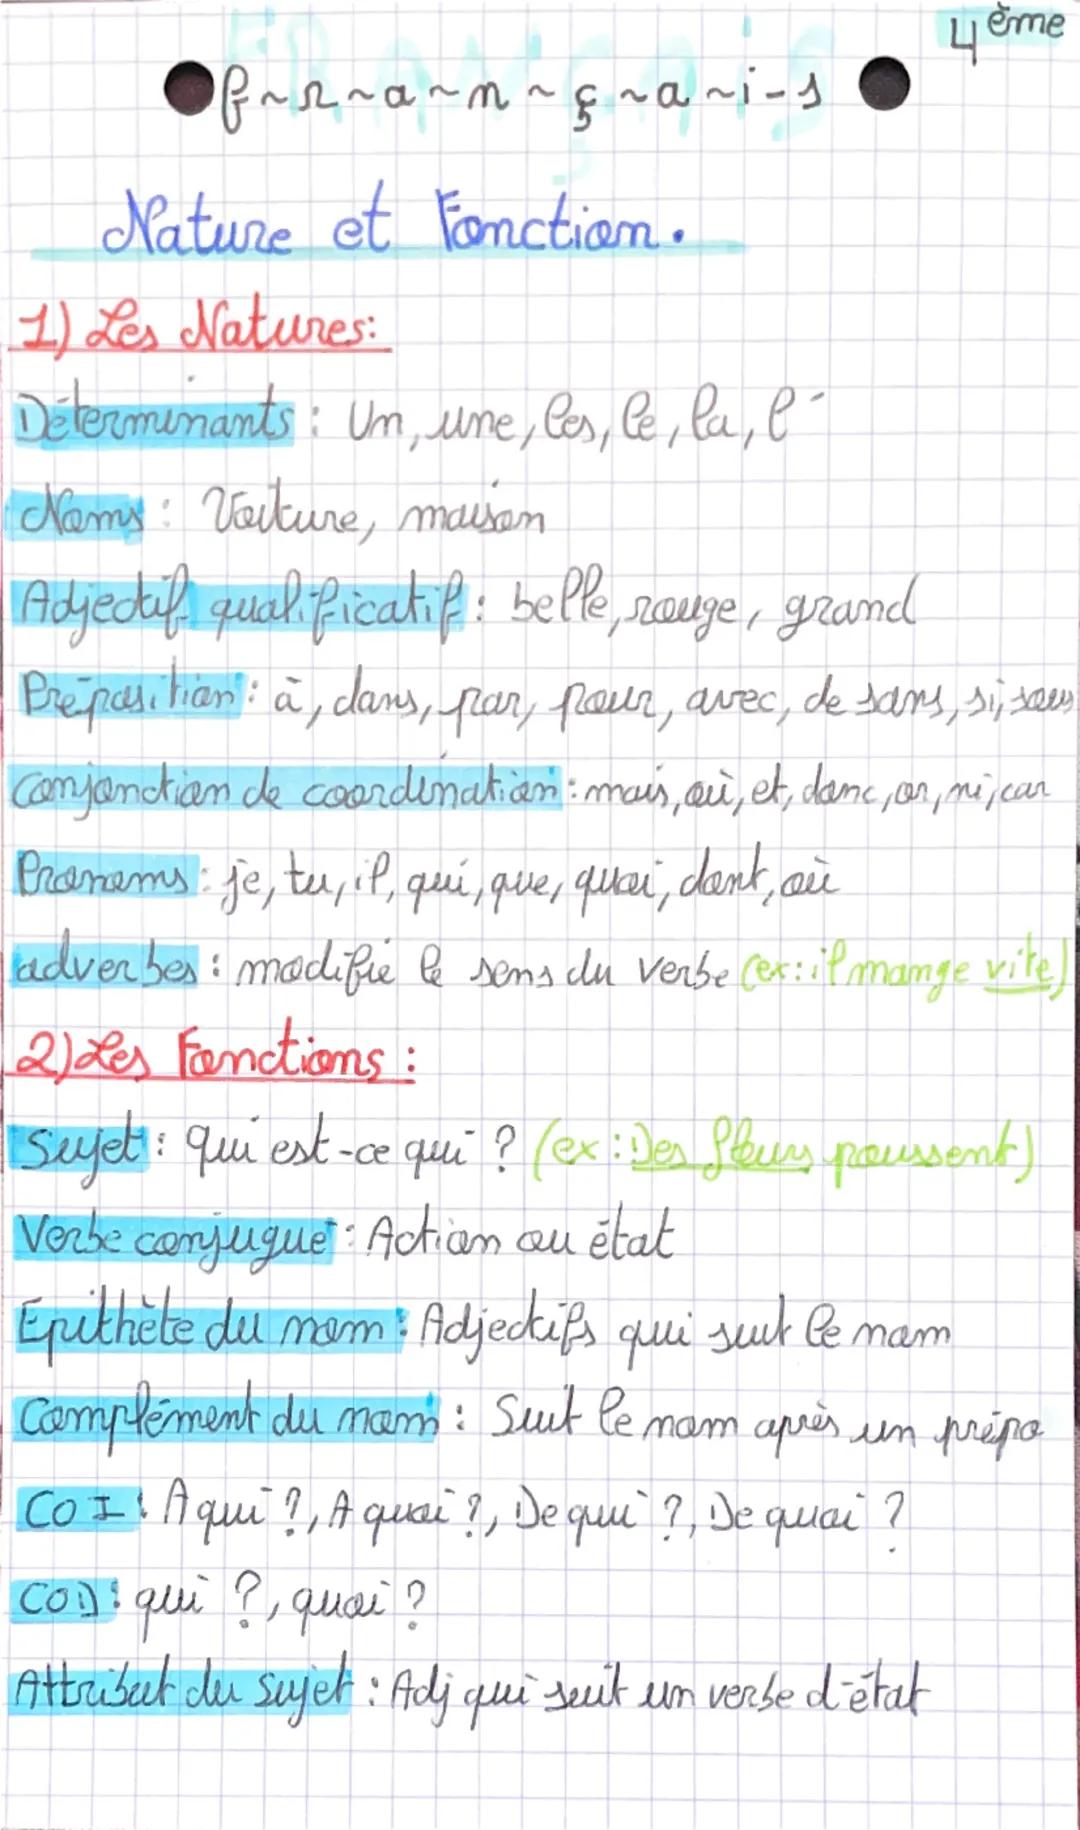 4ème
f~r~a~n~ç~a~i-s
Nature et Fonction.
1) Les Natures:
Déterminants : Un, une, les, le, la, l'
Noms : Voiture, maison
Adjectif qualificatif : belle, rouge, grand
Préposition : à, dans, par, pour, avec, de sans, si, sous
conjonction de coordination : mais, où, et, donc, or, ni, car
Pronoms : je, tu, il, qui, que, quoi, dont, où
adverbes : modifie le sens du verbe (ex: il mange vite)
2) Les Fonctions :
Sujet : qui est-ce qui ? (ex : Des fleurs poussent)
Verbe conjugué : Action ou état
Epithète du nom : Adjectifs qui suit le nom
Complément du nom : Suit le nom après un prépo
COI : A qui ?, A quoi ?, De qui ?, De quoi ?
COD : qui ?, quoi ?
Attribut du sujet : Adj qui suit un verbe d'état